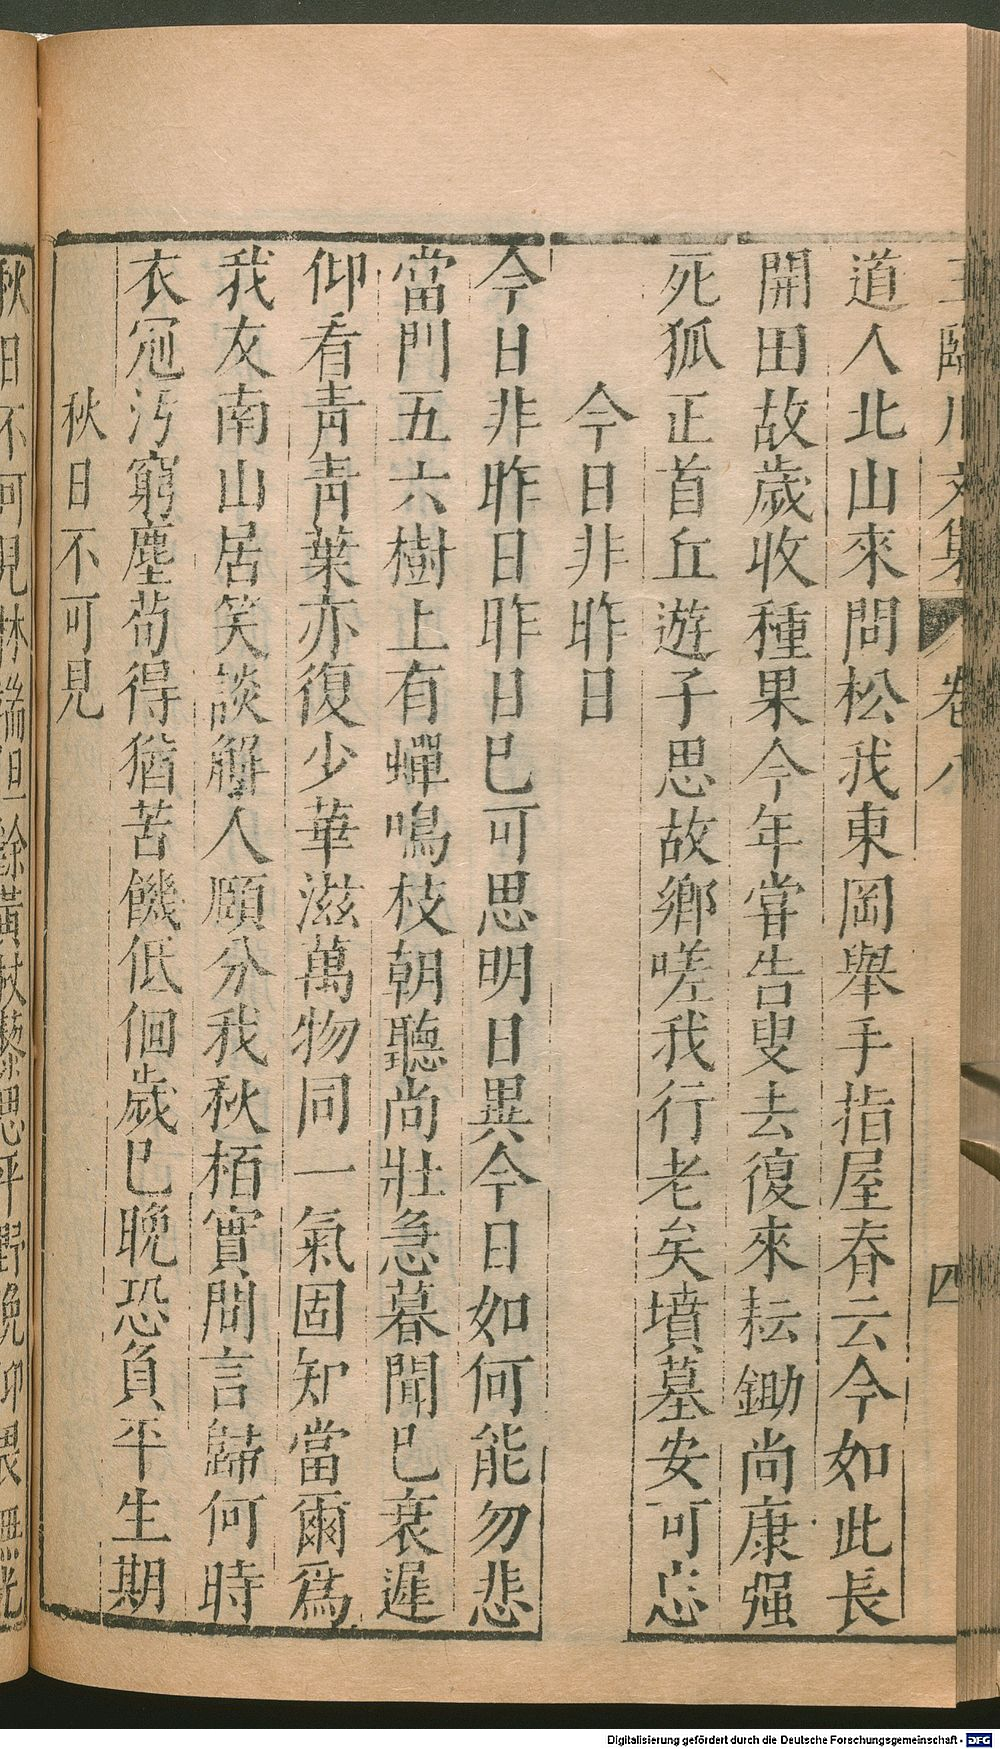 王臨川文集 卷八 四
道人北山來問松我東岡舉手指屋春云今如此長
開田故歲收種果今年甞告叟去復來耘鋤尚康强
死狐正首丘遊子思故鄉嗟我行老矣墳墓安可忘
今日非昨日
今日非昨日昨日巳可思明日異今日如何能勿悲
當門五六樹上有蟬鳴枝朝聽尚壯急暮聞巳衰遲
仰看青青葉亦復少華滋萬物同一氣固知當爾爲
我友南山居笑談解人頤分我秋栢實問言歸何時
衣冠汚窮塵苟得猶苦饑低佪歲巳晚恐負平生期
秋日不可見
秋日不可見林端但餘黃杖藜思平野俛仰畏無光
Digitalisierung gefördert durch die Deutsche Forschungsgemeinschaft - DFG